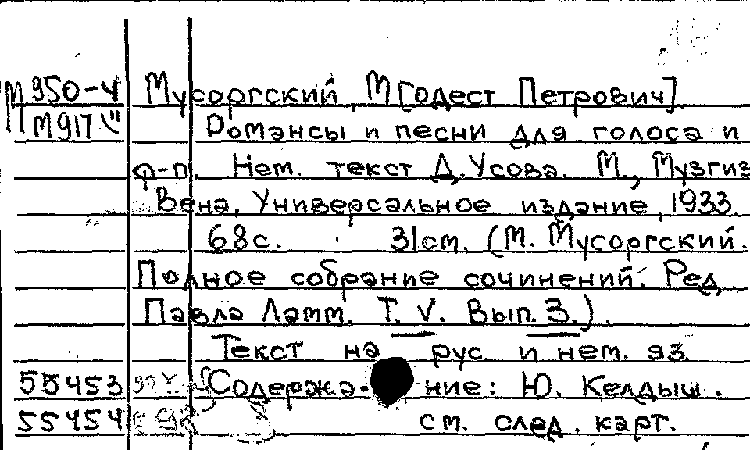 М950-4 Мусоргский, М[одест Петрович].
М917 Романсы и песни для голоса и
ф-п. Нем. текст Д. Усова. М., Музгиз
Вена, Универсальное издание, 1933.
68с. 31см. (М. Мусоргский.
Полное собрание сочинений. Ред.
Павла Ламм. Т. V. Вып. 3.).
Текст на рус и нем. яз.
55453 Содержа-ние: Ю. Келдыш.
55454 см. след. карт.